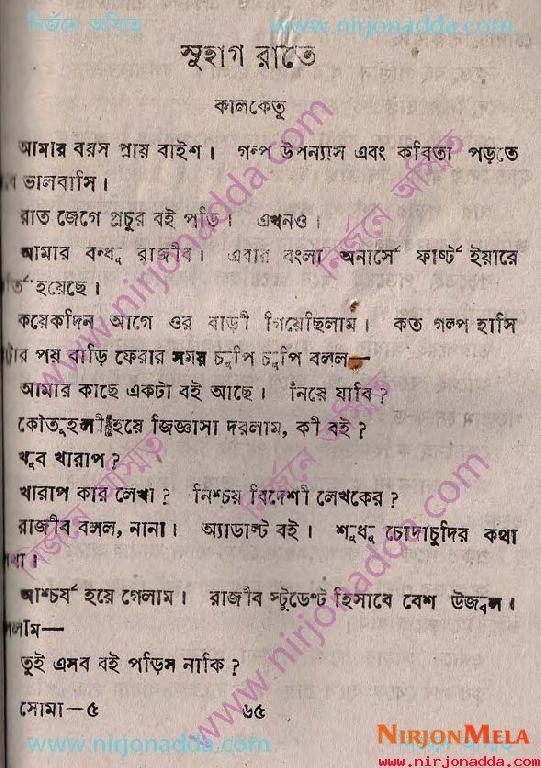 নির্জনে অসিতে www.nirjonadda.com
সুহাগ রাতে
কালকেতু
আমার বয়স প্রায় বাইশ। গল্প উপন্যাস এবং কবিতা পড়তে
ভালবাসি।
রাত জেগে প্রচুর বই পড়ি। এখনও।
আমার বন্ধু রাজীব। এবার বাংলা অনার্সে ফার্স্ট ইয়ারে
হয়েছে।
কয়েকদিন আগে ওর বাড়ী গিয়েছিলাম। কত গল্প হাসি
পর বাড়ি ফেরার সময় চুপি চুপি বলল—
আমার কাছে একটা বই আছে। নিয়ে যাবি?
কৌতূহলী হয়ে জিজ্ঞাসা দরলাম, কী বই?
খুব খারাপ?
খারাপ কার লেখা? নিশ্চয় বিদেশী লেখকের?
রাজীব বলল, নানা। অ্যাডাল্ট বই। শুধু চোদাচুদির কথা
আশ্চর্য হয়ে গেলাম। রাজীব স্টুডেন্ট হিসাবে বেশ উজ্বল।
তুই এসব বই পড়িস নাকি?
সোমা—৫ ৬৫
www.nirjonadda.com
NIRJONMELA
www.nirjonadda.com